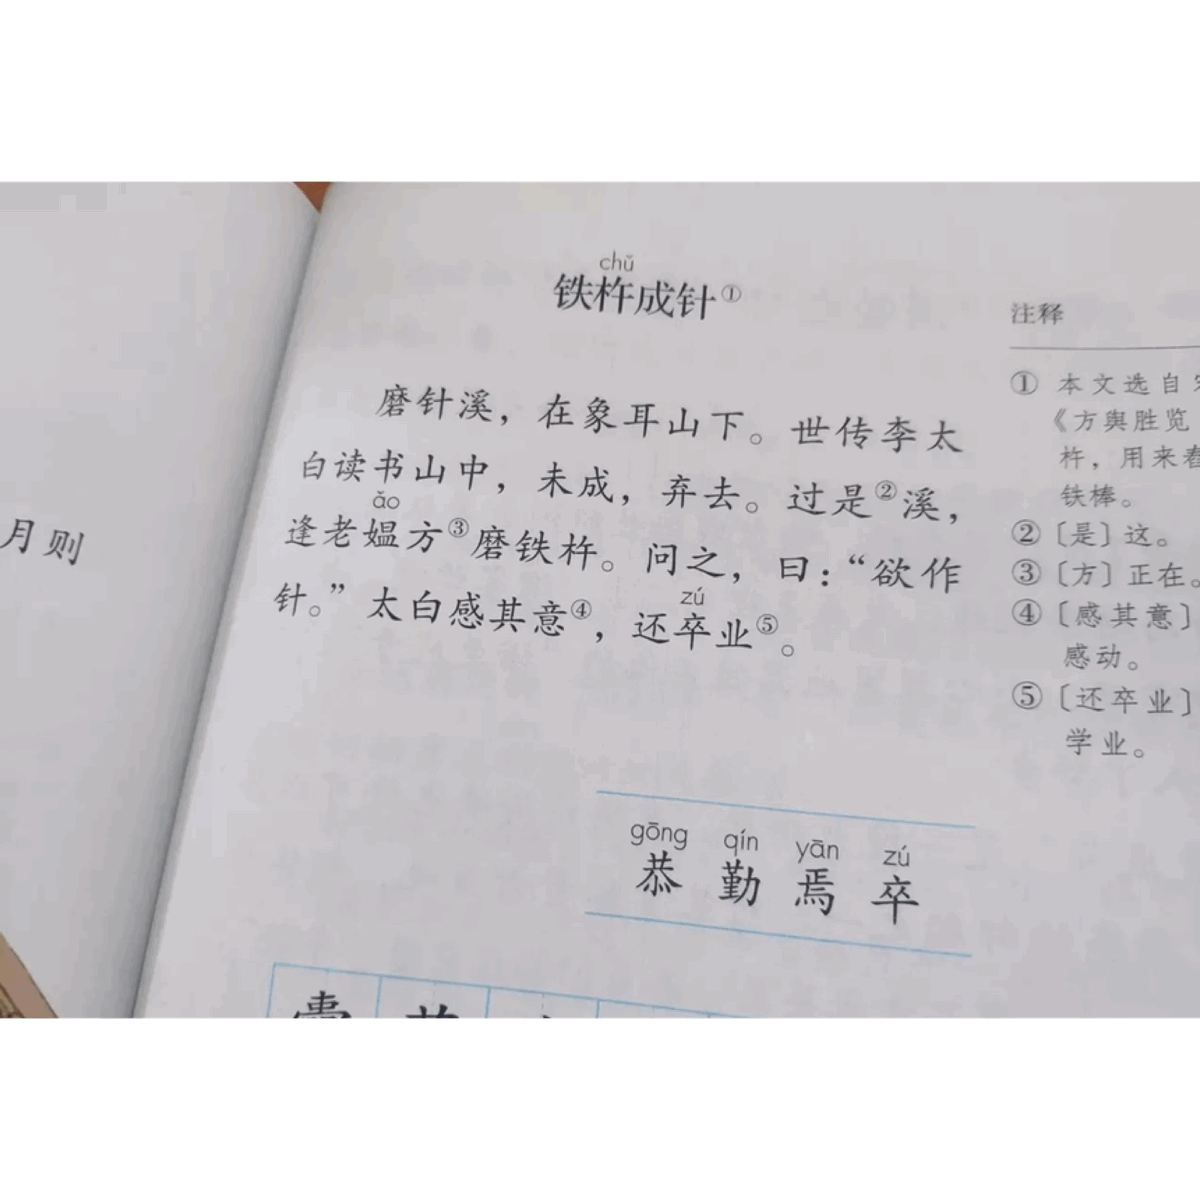 月则
chǔ
铁杵成针①
磨针溪，在象耳山下。世传李太
白读书山中，未成，弃去。过是②溪，
ǎo
逢老媪方③磨铁杵。问之，曰：“欲作
zú
针。”太白感其意④，还卒业⑤。
注释
① 本文选自
《方舆胜览
杵，用来
铁棒。
②〔是〕这。
③〔方〕正在。
④〔感其意〕
感动。
⑤〔还卒业〕
学业。
gōng qín yān zú
恭 勤 焉 卒